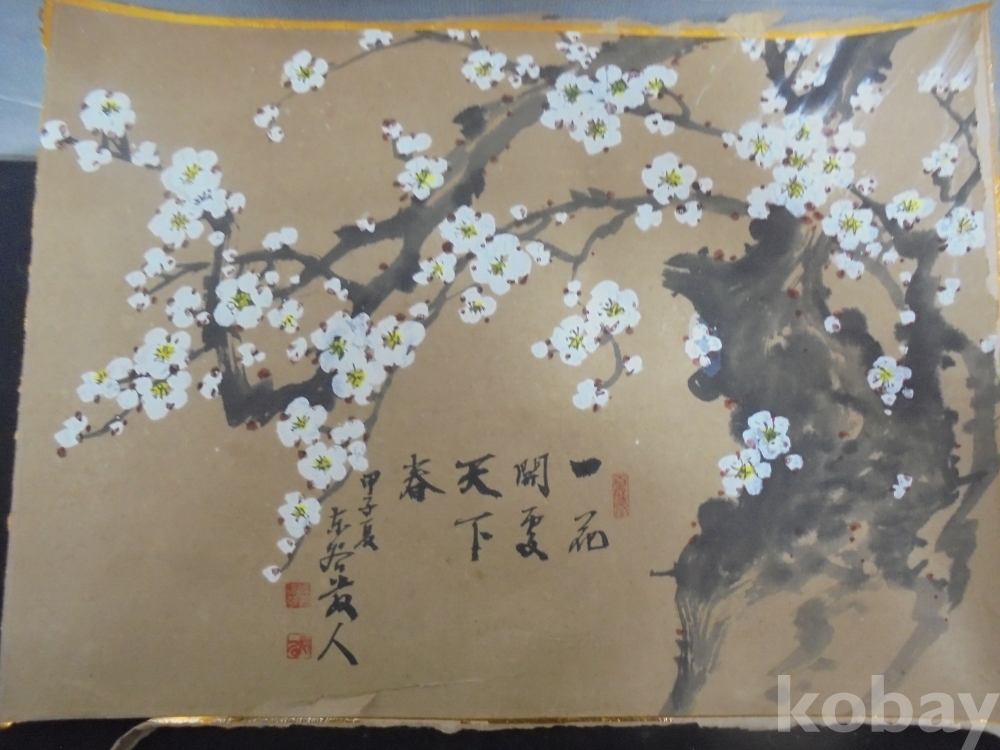 一花
開處
天下
春
甲子夏
東谷人
kobay